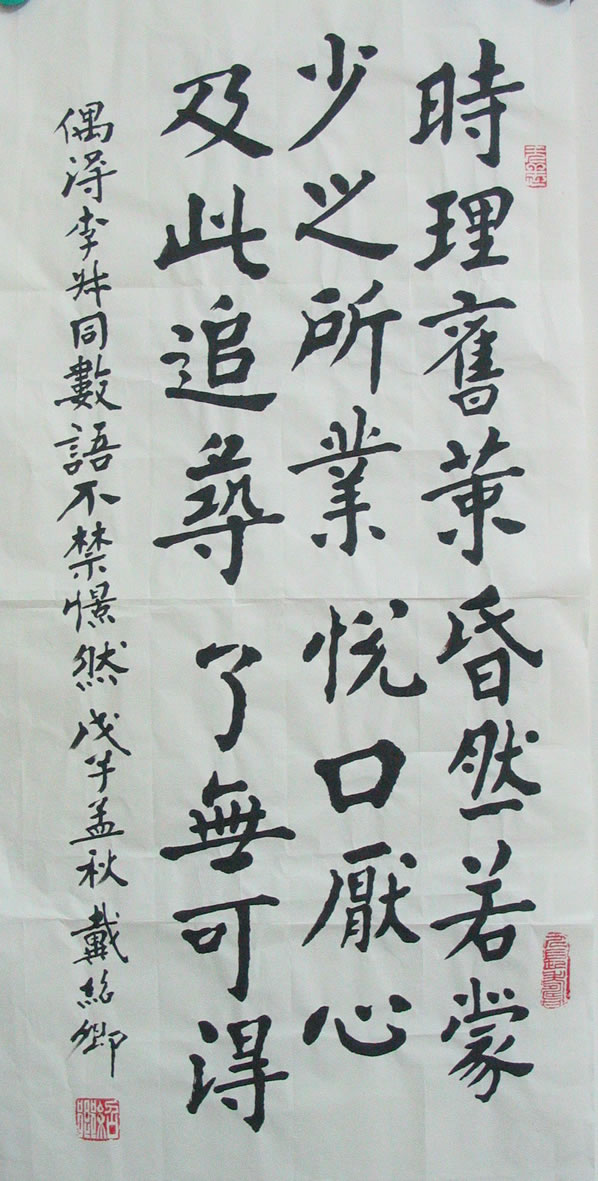 時理舊策昏然若蒙
少之所業悅口厭心
及此追尋了無可得
偶得李叔同數語不禁憬然戊子孟秋戴紹卿